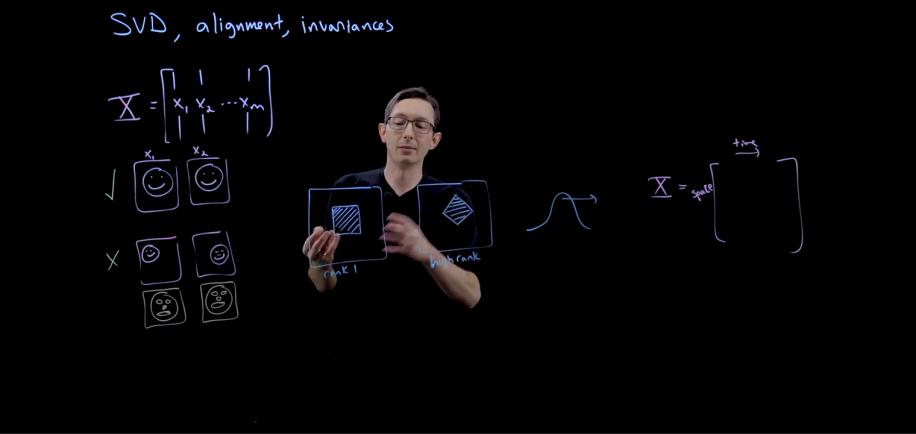 SVD, alignment, invariances
X = [x₁ x₂ ⋯ xₘ]
x₁ x₂
✓
X
rank 1
high rank
time
X = space [ ]